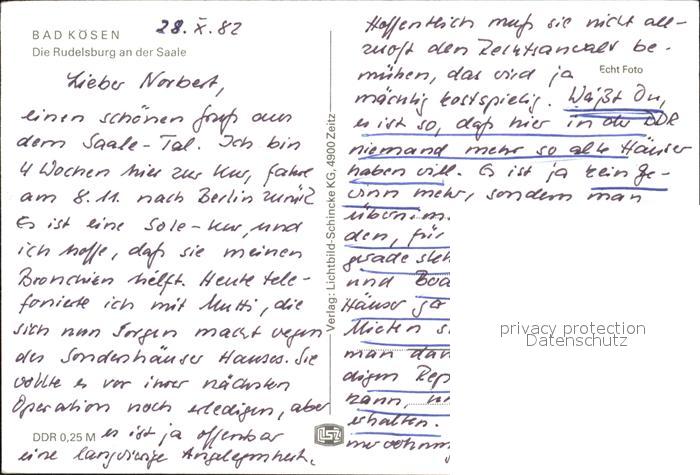 BAD KÖSEN
Die Rudelsburg an der Saale
28. X. 82
Lieber Norbert,
einen schönen Gruß aus
dem Saale-Tal. Ich bin
4 Wochen hier zur Kur, fahre
am 8.11. nach Berlin zurück
Es ist eine Sole-Kur, und
ich hoffe, daß sie meinen
Bronchien hilft. Heute tele-
fonierte ich mit Mutti, die
sich nun Sorgen macht wegen
des Sondershäuser Hauses. Sie
wollte es vor ihrer nächsten
Operation noch erledigen, aber
es ist ja offenbar
eine langwierige Angelegenheit.
DDR 0,25 M
Verlag: Lichtbild-Schincke KG, 4900 Zeitz
Echt Foto
Hoffentlich muß sie nicht all-
zuoft den Rechtsanwalt be-
mühen, das wird ja
mächtig kostspielig. Weißt Du,
es ist so, daß hier in der DDR
niemand mehr so alte Häuser
haben will. Es ist ja kein Ge-
winn mehr, sondern man
übernim
den, für
gerade steh
und Bod
Häuser
Mieten s
man dar
digen Rep
kann,
erhalten.
privacy protection
Datenschutz